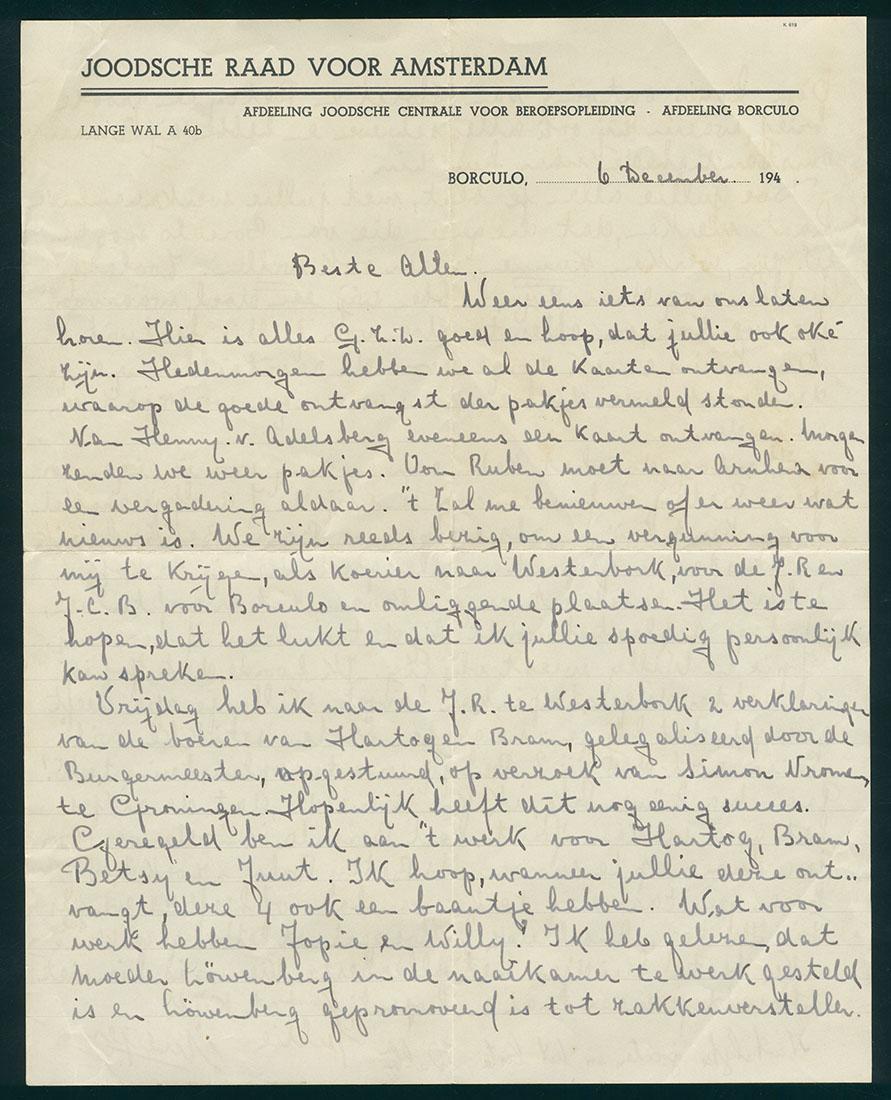 K 618
JOODSCHE RAAD VOOR AMSTERDAM
AFDEELING JOODSCHE CENTRALE VOOR BEROEPSOPLEIDING - AFDEELING BORCULO
LANGE WAL A 40b
BORCULO, 6 December 194 .
Beste Allen.
Weer eens iets van ons laten
horen. Hier is alles G.z.D. goed en hoop, dat jullie ook oké
zijn. Hedenmorgen hebben we al de kaarten ontvangen,
waarop de goede ontvangst der pakjes vermeld stonden.
Van Henny v. Adelsberg eveneens een kaart ontvangen. Morgen
zenden we weer pakjes. Oom Ruben moet naar Arnhem voor
een vergadering aldaar. 't Zal me benieuwen of er weer wat
nieuws is. We zijn reeds bezig, om een vergunning voor
mij te krijgen, als koerier naar Westerbork, voor de J.R en
J.C.B. voor Borculo en omliggende plaatsen. Het is te
hopen, dat het lukt en dat ik jullie spoedig persoonlijk
kan spreken.
Vrijdag heb ik naar de J.R. te Westerbork 2 verklaringen
van de boeren van Hartog en Bram, gelegaliseerd door de
Burgermeester, opgestuurd, op verzoek van Simon Vromen,
te Groningen. Hopenlijk heeft dit nog eenig succes.
Geregeld ben ik aan 't werk voor Hartog, Bram,
Betsy en Juut. Ik hoop, wanneer jullie deze ont..
vangt, deze 4 ook een baantje hebben. Wat voor
werk hebben Jopie en Willy? Ik heb gelezen, dat
Moeder Löwenberg in de naaikamer te werk gesteld
is en Löwenberg gepromoveerd is tot zakkenversteller.